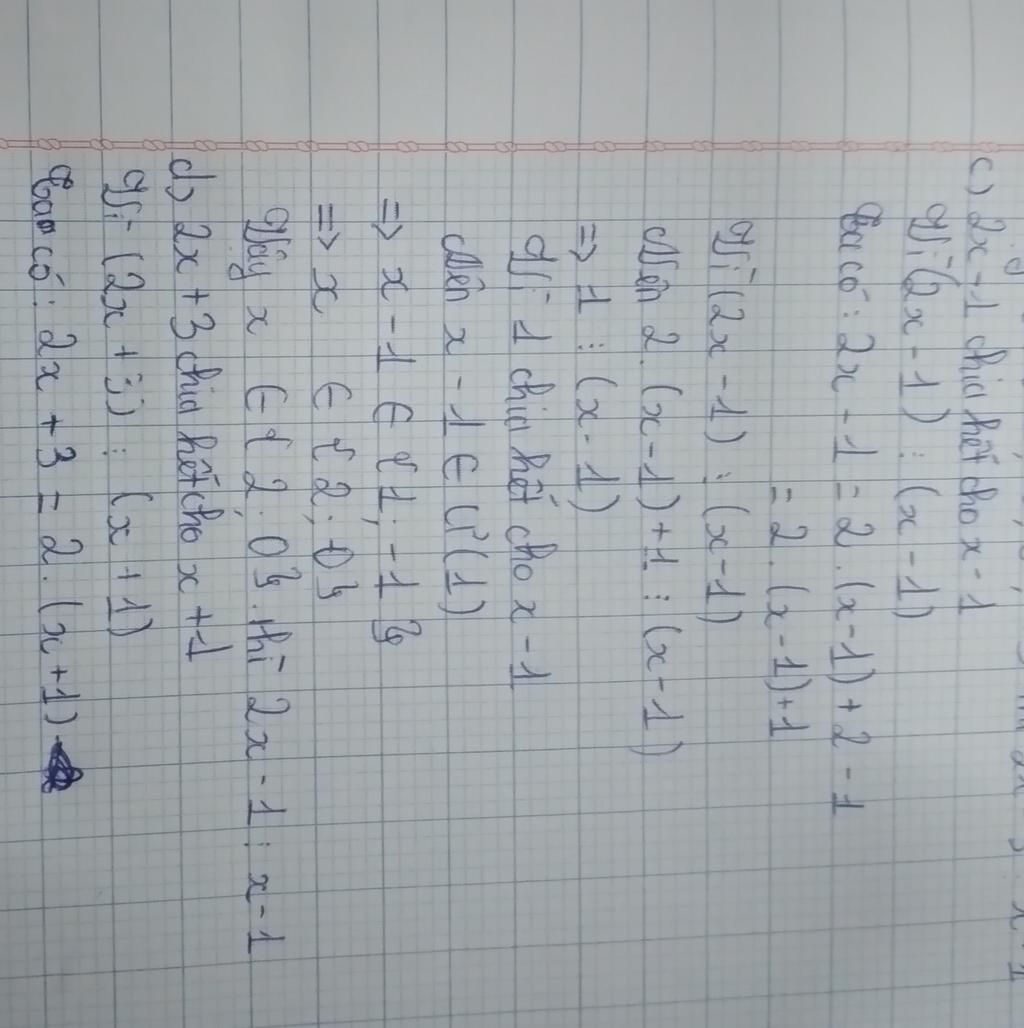 c) 2x-1 chia hết cho x-1
Vì (2x-1) ⋮ (x-1)
Ta có: 2x-1 = 2.(x-1)+2-1
= 2.(x-1)+1
Vì (2x-1) ⋮ (x-1)
Nên 2.(x-1)+1 ⋮ (x-1)
=> 1 ⋮ (x-1)
Vì 1 chia hết cho x-1
Nên x-1 ∈ Ư(1)
=> x-1 ∈ {1;-1}
=> x ∈ {2;0}
Vậy x ∈ {2;0}. thì 2x-1 ⋮ x-1
d) 2x+3 chia hết cho x+1
Vì (2x+3) ⋮ (x+1)
Ta có: 2x+3 = 2.(x+1)